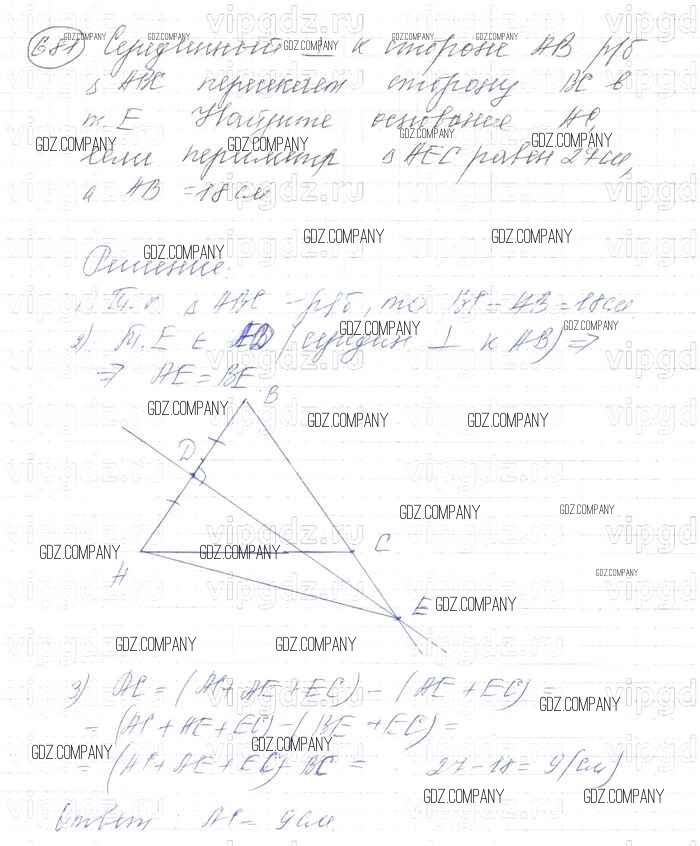 681 Серединный ⊥ к стороне AB р/б
Δ ABC пересекает сторону BC в
т. E Найдите основание AC,
если периметр Δ AEC равен 27 см,
а AB = 18 см
Решение:
1. Т.к. Δ ABC - р/б, то BC = AB = 18 см
2) т. E ∈ ED (середин ⊥ к AB) ⇒
⇒ AE = BE
B
D
C
A
E
3) AC = (AC + AE + EC) - (AE + EC) =
= (AC + AE + EC) - (BE + EC) =
= (AC + AE + EC) - BC = 27 - 18 = 9 (см)
Ответ: AC = 9 см